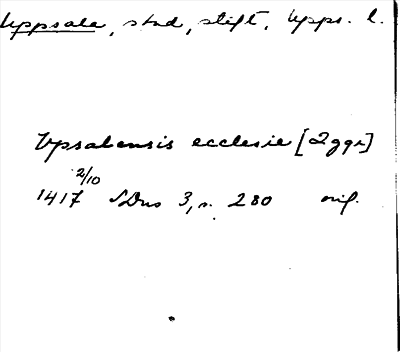 Uppsala, stad, stift, Upps. l.
Vpsalensis ecclesie [2 ggr]
1417 2/10 SDns 3, s. 280 orig.